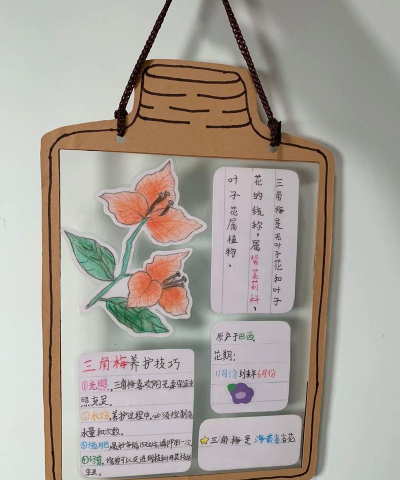 三角梅是光叶子花和叶子
花的统称,属紫茉莉科、
叶子花属植物。
原产于巴西
花期:
11月份到来年6月份
三角梅养护技巧
①光照,三角梅喜欢阳光需保证光
照充足。
②水分,养护过程中,必须控制
水量和次数。
③施肥,最好每隔15
一次
④修剪,
三角梅是海南省省花